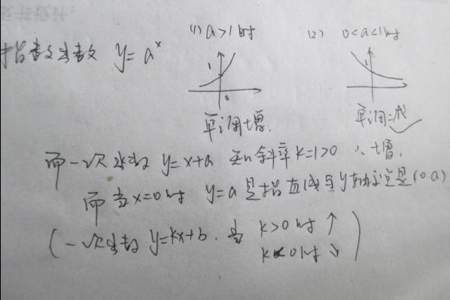 (1) a>1时 (2) 0<a<1时
指数函数 y=a^x
单调增. 单调减
而一次函数 y=x+a 知斜率 k=1>0 ∴增.
而当 x=0时 y=a 是指直线与y轴交点是(0.a)
(一次函数 y=kx+b. 当 k>0时 ↑
k<0时 ↓)